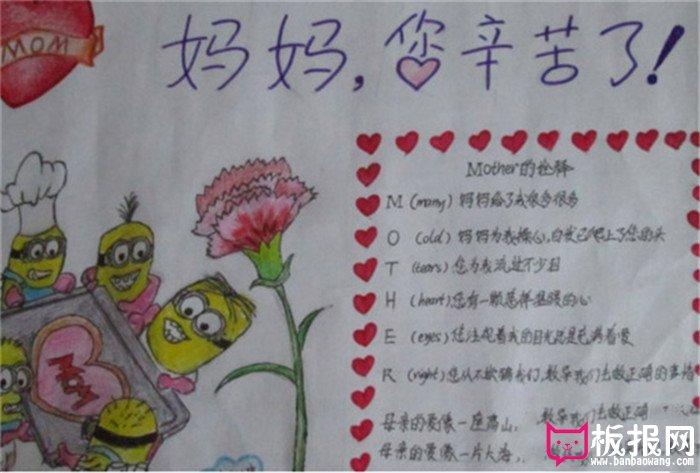 MOM
妈妈,您辛苦了!
Mother的诠释
M (many) 妈妈给了我很多很多
O (old) 妈妈为我操心,白发已爬上了您的头
T (tears) 您为我流过不少泪
H (heart) 您有一颗慈祥温暖的心
E (eyes) 您注视着我的目光总是充满着爱
R (right) 您从不欺骗我们,教导我们去做正确的事情
母亲的爱像一座高山, 教导我们去做正确
母亲的爱像一片大海,
MOM
板报网
www.banbaowang.com